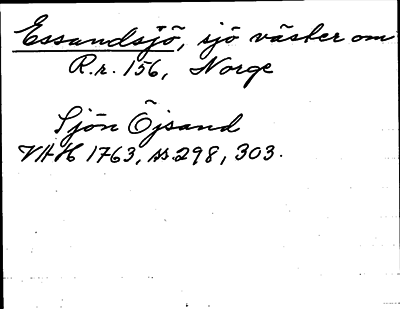 Essandsjö, sjö väster om
R.r. 156, Norge
Sjön Öjsand
VAH 1763, ss. 298, 303.